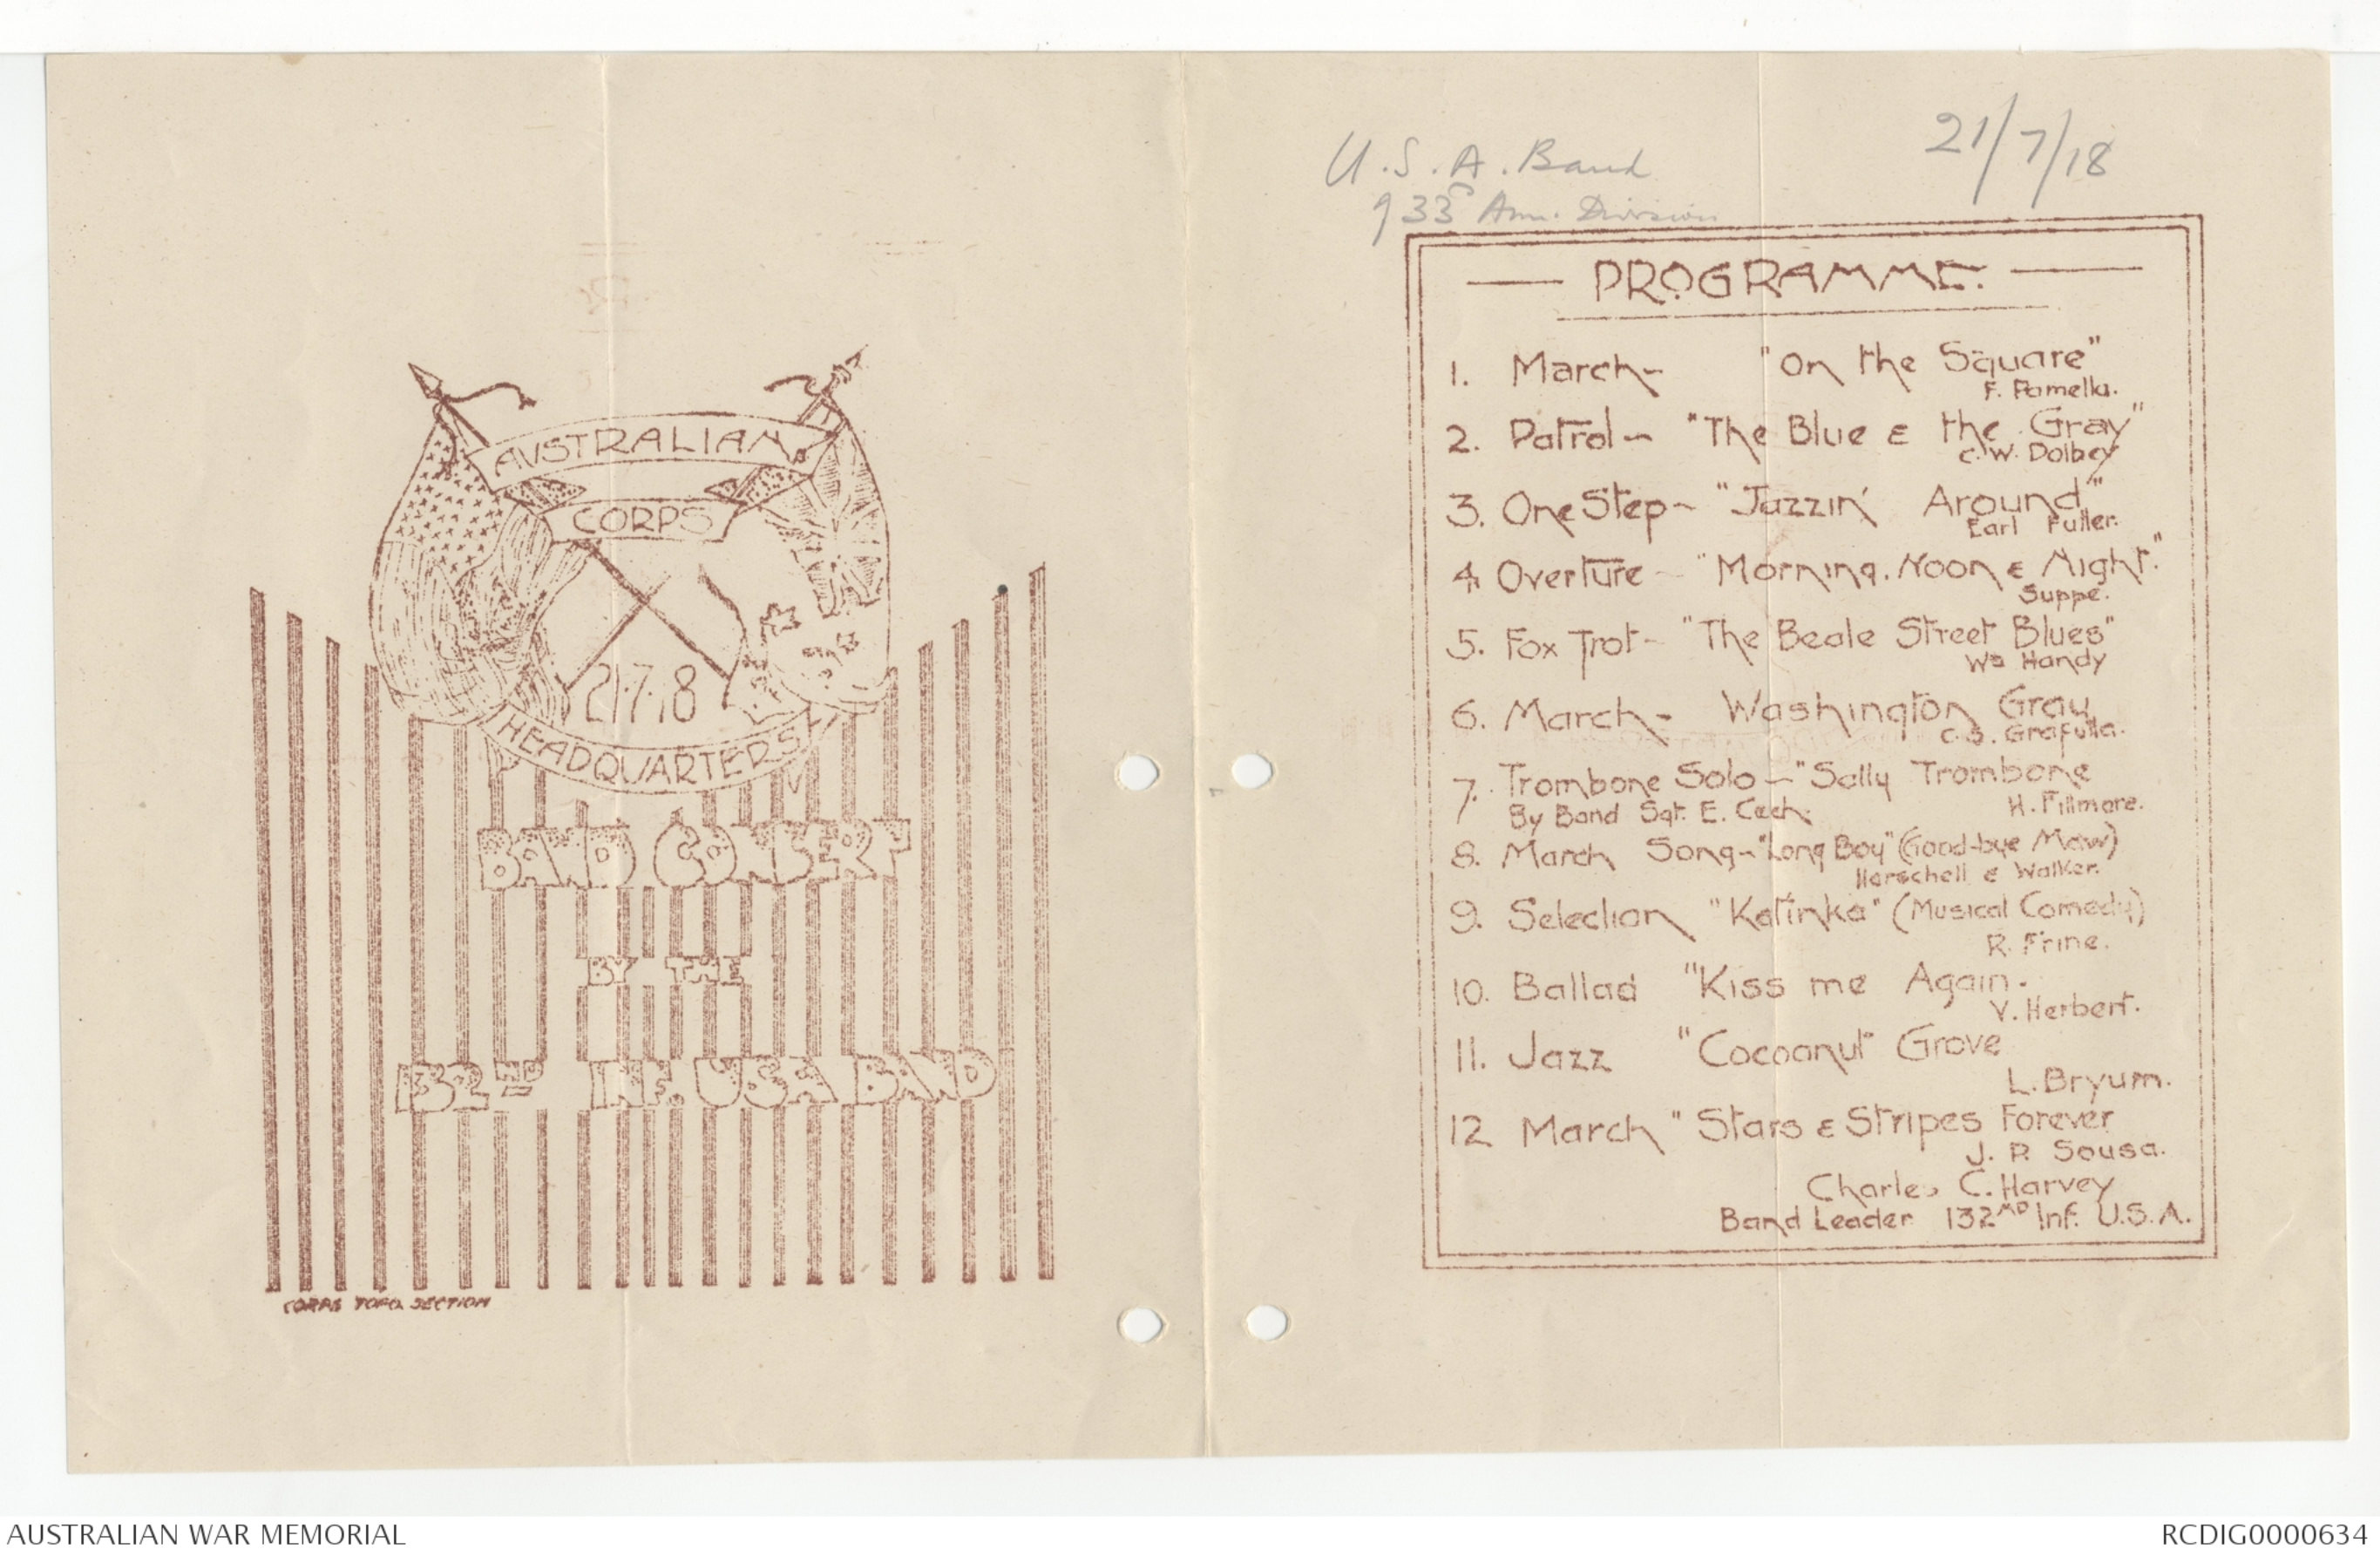 AUSTRALIAN
CORPS
21·7·18
HEADQUARTERS
BAND CONCERT
BY THE
132ND INF. USA BAND
CORPS TOPO. SECTION
U.S.A. Band
21/7/18
33rd Am. Division
PROGRAMME.
1. March- "On the Square"
F. Pamella.
2. Patrol - "The Blue & the Gray"
C. W. Dolbey
3. One Step - "Jazzin' Around"
Earl Fuller.
4. Overture - "Morning, Noon & Night."
Suppe.
5. Fox Trot - "The Beale Street Blues"
Handy
6. March - Washington Gray
C. S. Grafulla.
7. Trombone Solo - "Sally Trombone
By Band Sgt. E. Cech. H. Fillmore.
8. March Song - "Long Boy" (Good-bye Maw)
Herschell & Walker.
9. Selection "Katinka" (Musical Comedy)
R. Frine.
10. Ballad "Kiss me Again.
V. Herbert.
11. Jazz "Cocoanut Grove
L. Bryum.
12 March "Stars & Stripes Forever
J. P. Sousa.
Charles C. Harvey
Band Leader 132ND Inf. U.S.A.
AUSTRALIAN WAR MEMORIAL
RCDIG0000634